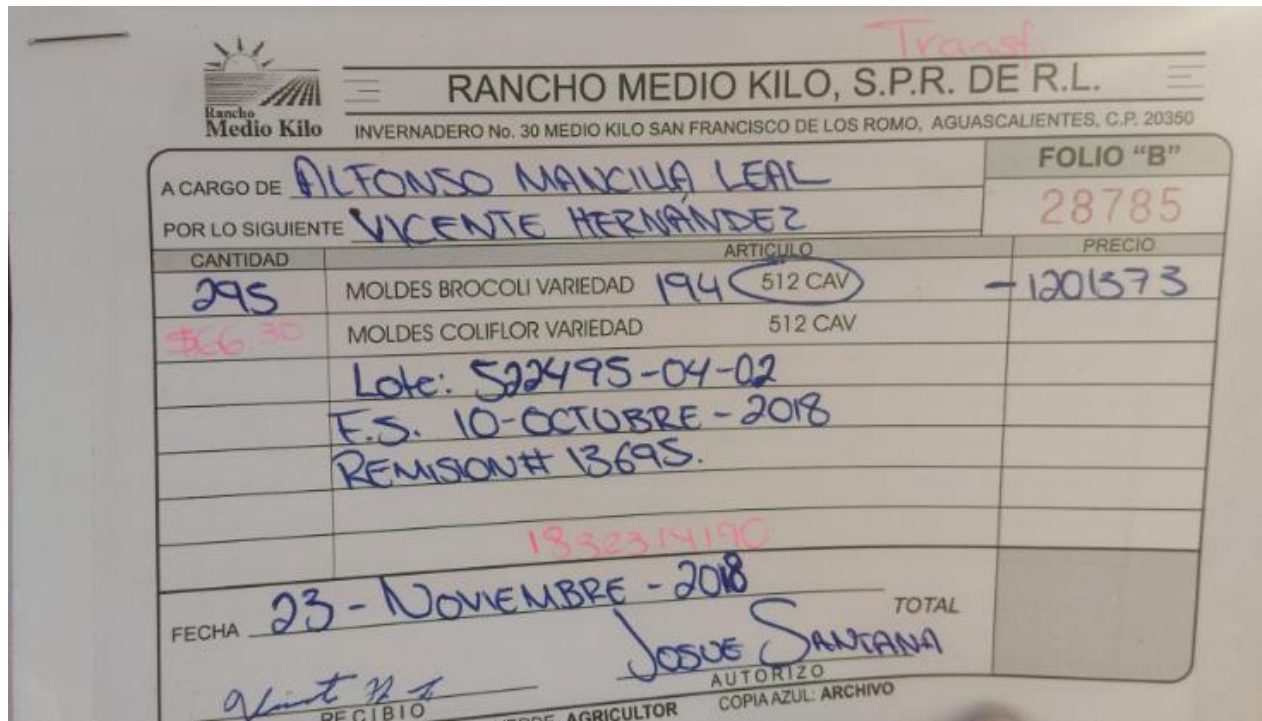 Transf.
RANCHO MEDIO KILO, S.P.R. DE R.L.
Rancho
Medio Kilo
INVERNADERO No. 30 MEDIO KILO SAN FRANCISCO DE LOS ROMO, AGUASCALIENTES, C.P. 20350
A CARGO DE ALFONSO MANCILLA LEAL
FOLIO “B”
28785
POR LO SIGUIENTE VICENTE HERNÁNDEZ
CANTIDAD ARTICULO PRECIO
295 MOLDES BROCOLI VARIEDAD 194 512 CAV -1201373
$66.30 MOLDES COLIFLOR VARIEDAD 512 CAV
Lote: 522495-04-02
F.S. 10-OCTUBRE-2018
REMISION# 13695.
1832314190
FECHA 23-NOVIEMBRE-2018
TOTAL
JOSUE SANTANA
AUTORIZO
RECIBIO
AGRICULTOR COPIA AZUL: ARCHIVO